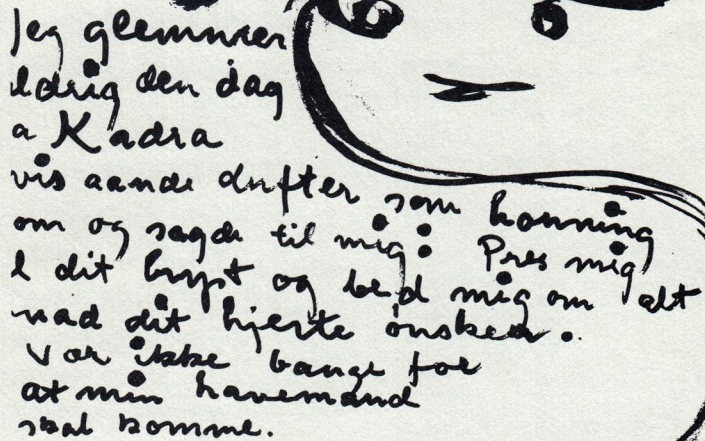 Jeg glemmer
ldrig den dag
a Kadra
vis aande dufter som honning
om og sagde til mig: Pres mig
l dit bryst og bed mig om alt
vad dit hjerte ønsker.
Vær ikke bange for
at min havemand
skal komme.